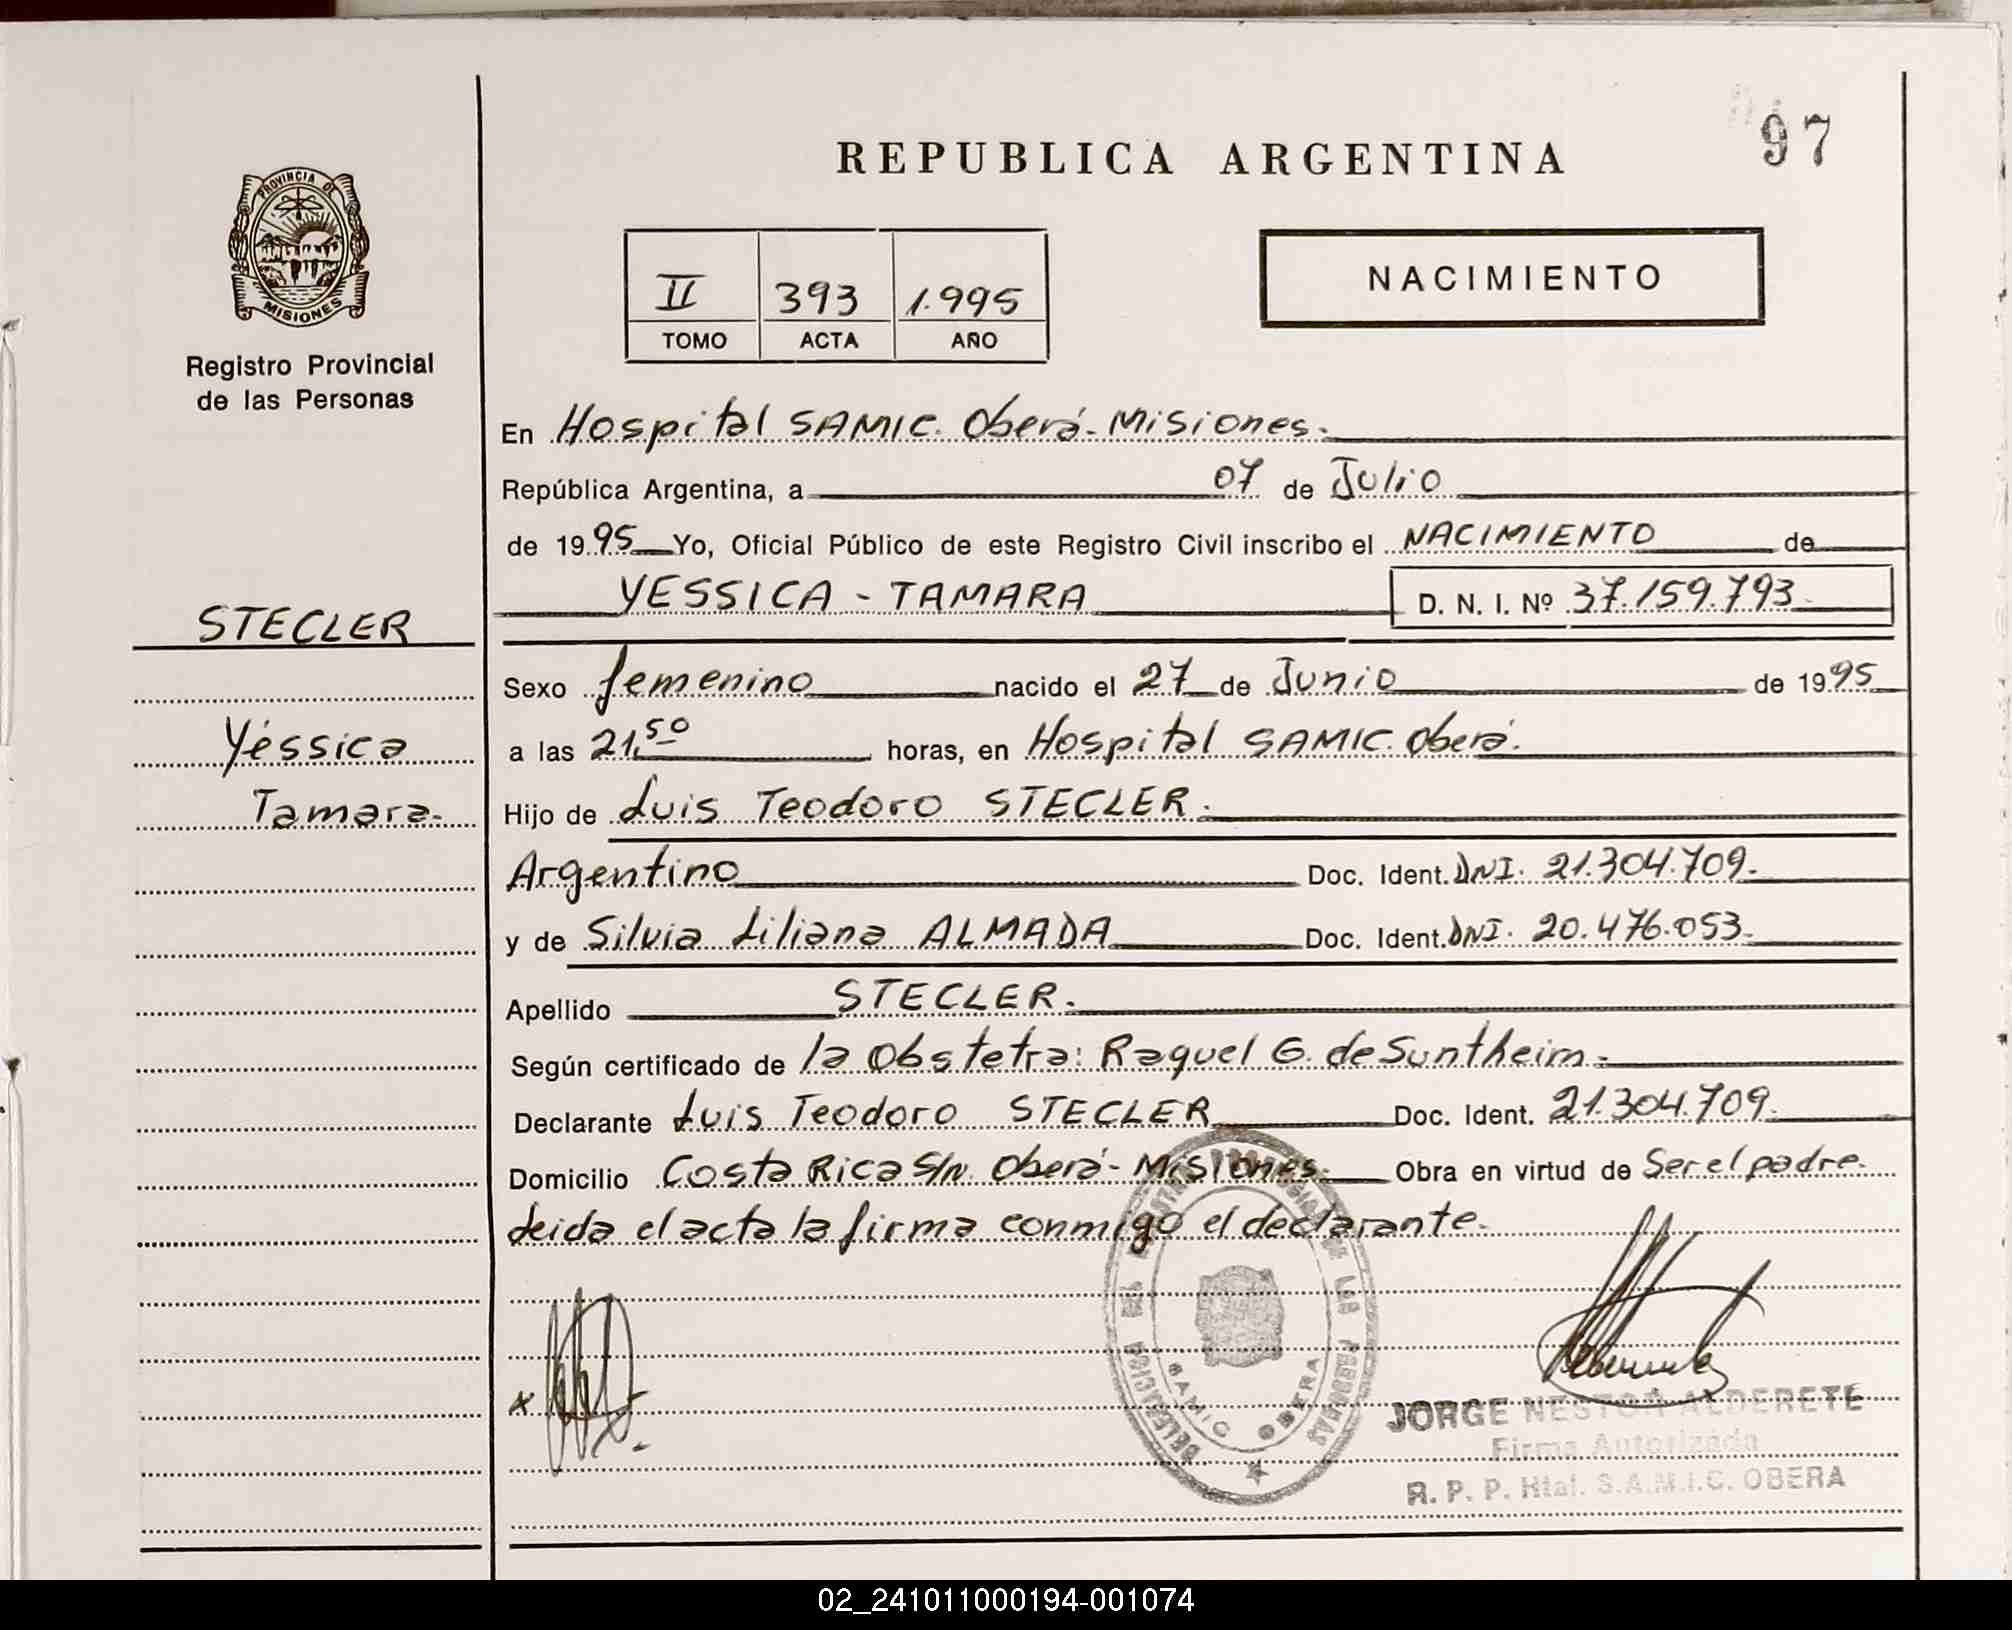 97
REPUBLICA ARGENTINA
PROVINCIA DE
MISIONES
Registro Provincial
de las Personas
II 393 1.995
TOMO ACTA AÑO
NACIMIENTO
En Hospital SAMIC. Oberá - Misiones.
República Argentina, a 07 de Julio
de 1995 Yo, Oficial Público de este Registro Civil inscribo el NACIMIENTO de
YESSICA - TAMARA D. N. I. Nº 37.159.793
STECLER
Yéssica
Tamara.
Sexo femenino nacido el 27 de Junio de 1995
a las 21,50 horas, en Hospital SAMIC. Oberá.
Hijo de Luis Teodoro STECLER.
Argentino Doc. Ident. DNI. 21.304.709.
y de Silvia Liliana ALMADA Doc. Ident. DNI. 20.476.053.
Apellido STECLER.
Según certificado de la Obstetra: Raquel G. de Suntheim.
Declarante Luis Teodoro STECLER Doc. Ident. 21.304.709.
Domicilio Costa Rica S/N. Oberá - Misiones. Obra en virtud de Ser el padre.
Leida el acta la firma conmigo el declarante.
DELEGACION DE LAS PERSONAS
SAMIC OBERA
JORGE NESTOR ALDERETE
Firma Autorizada
R. P. P. Htal. S.A.M.I.C. OBERA
02_241011000194-001074